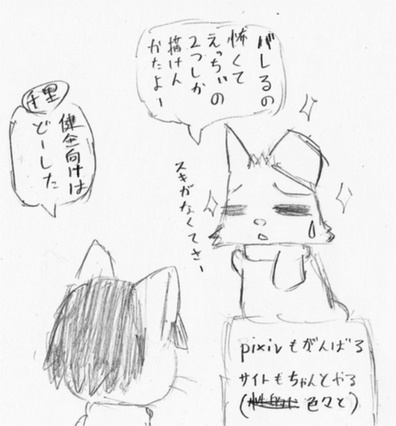 バレるの
怖くて
えっちぃの
2つしか
描けん
かたよー
スキがなくてさー
千里
健全向けは
どーした
pixivもがんばる
サイトもちゃんとやる
(色々と)